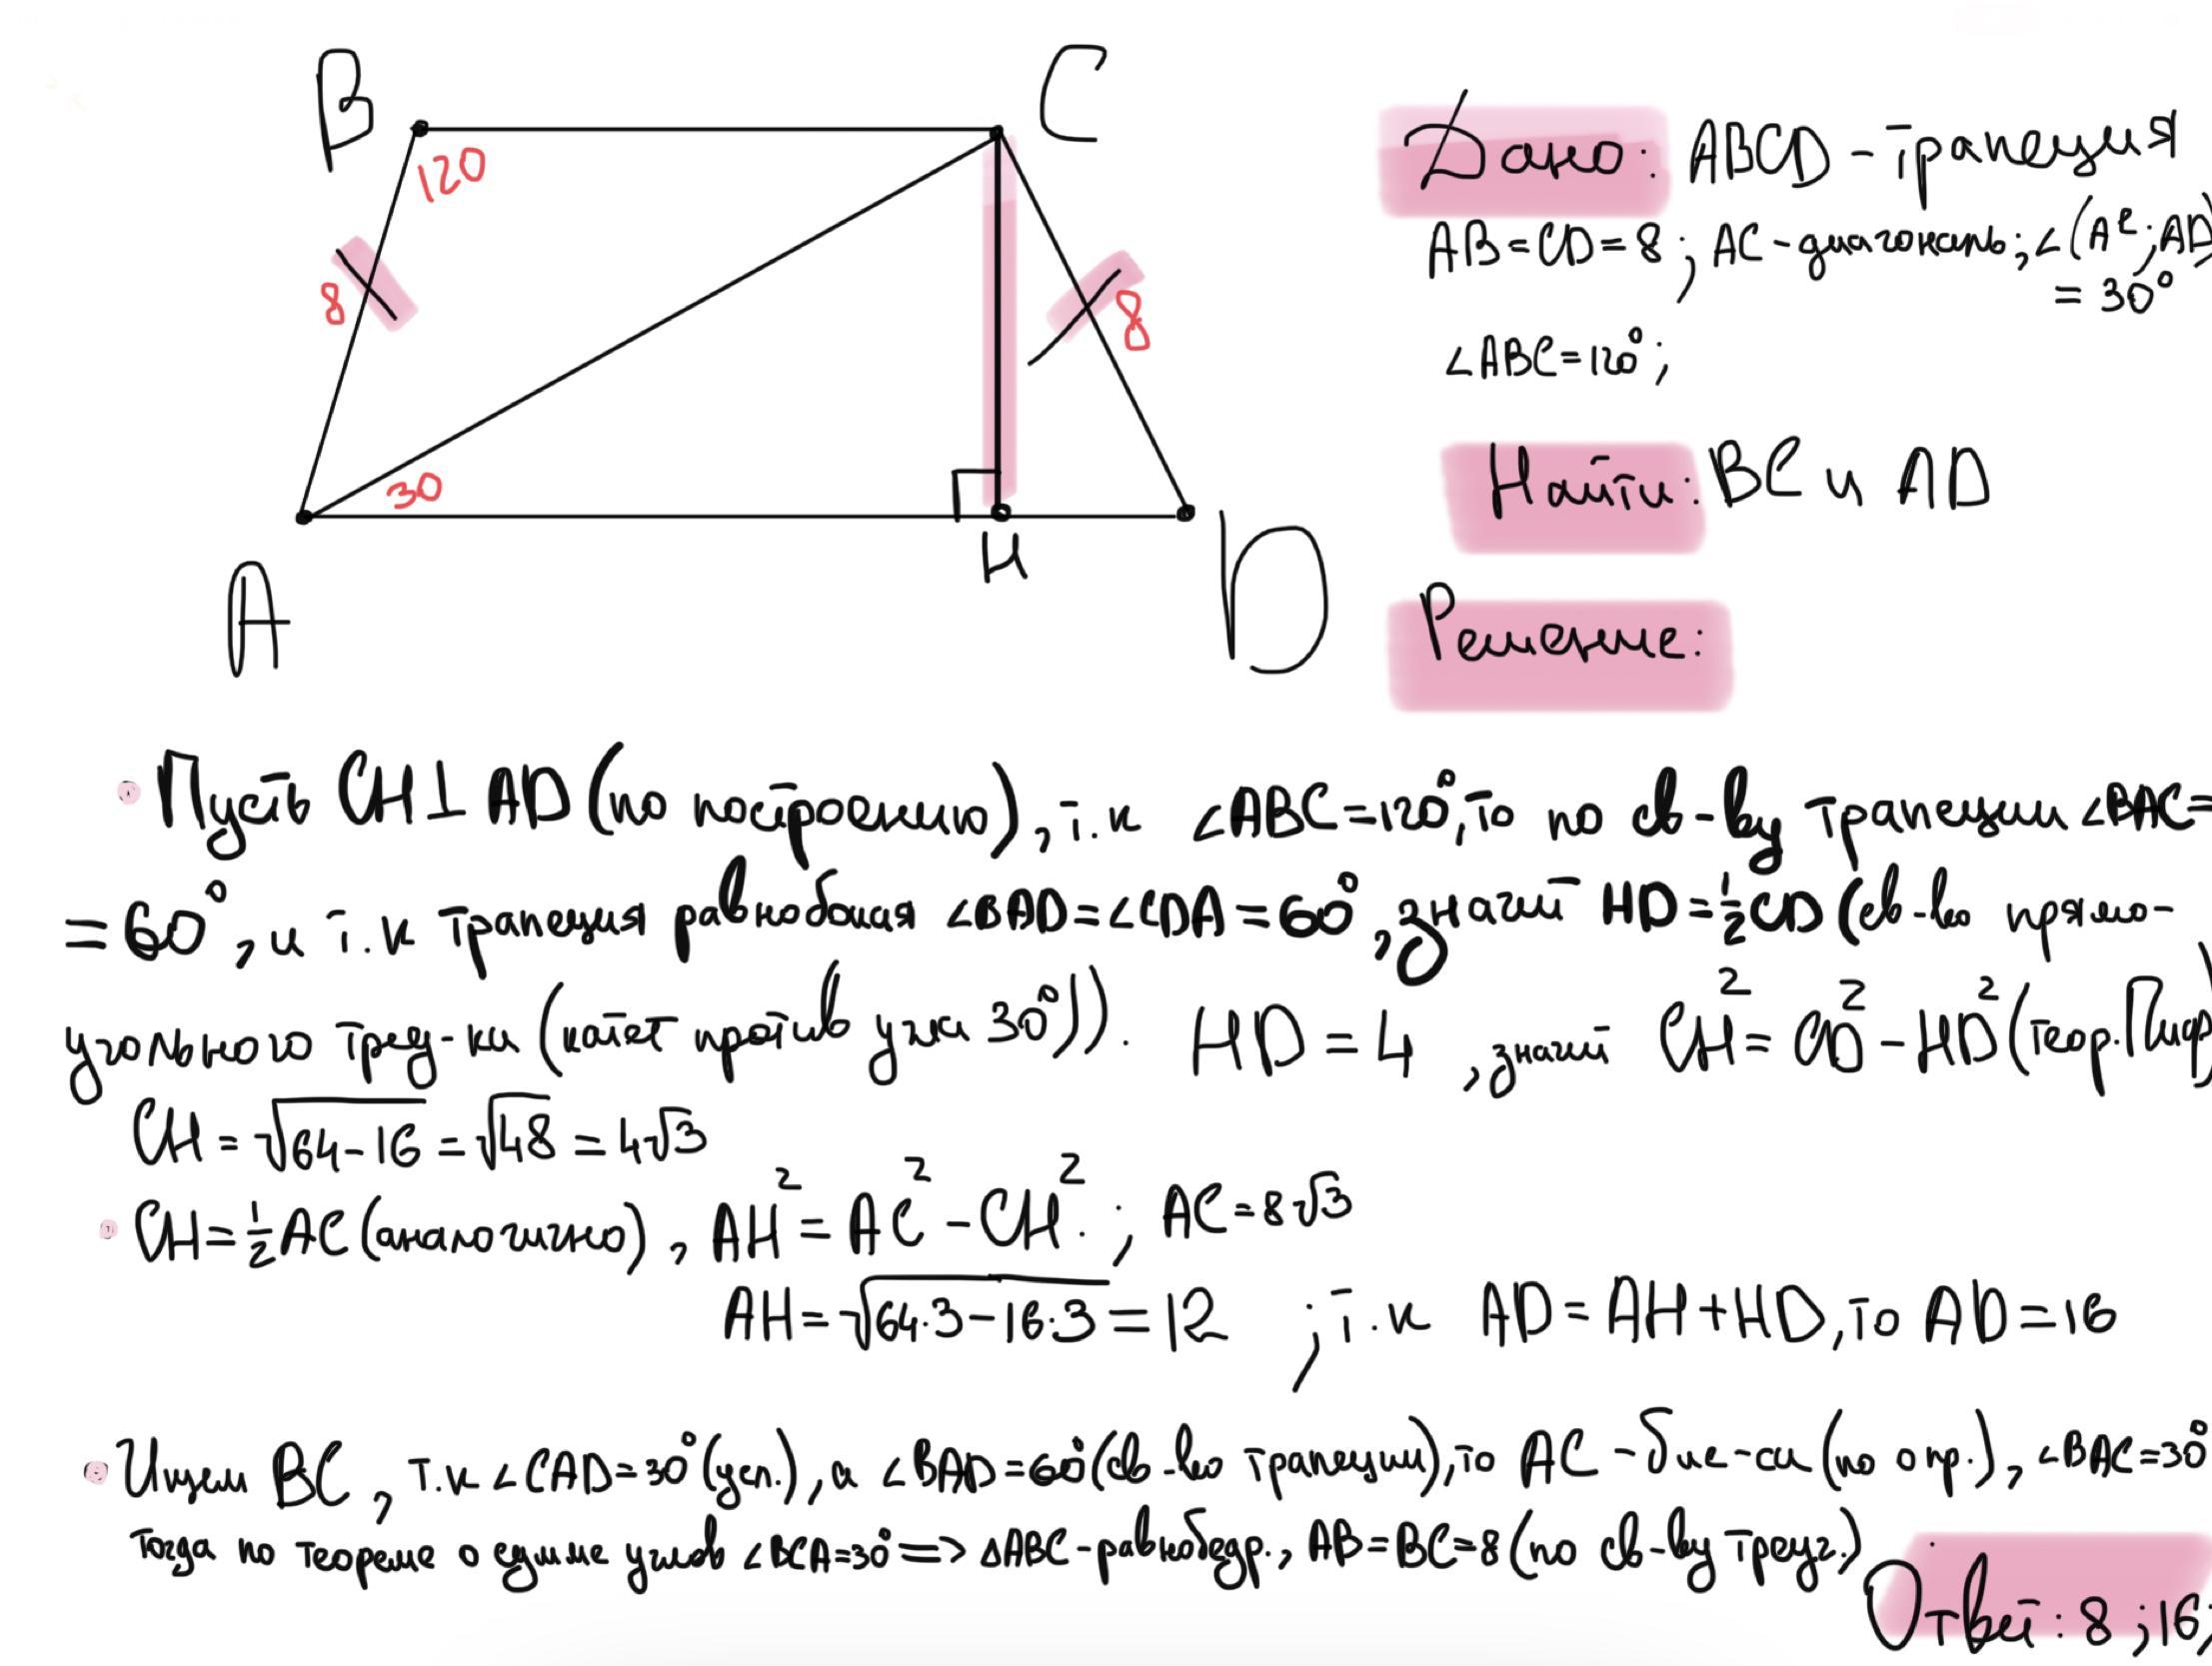 B
C
120
8
8
30
H
A
D
Дано: ABCD - трапеция
AB = CD = 8 ; AC - диагональ; ∠(AC; AD)
= 30°
∠ABC = 120°;
Найти: BC и AD
Решение:
• Пусть CH ⊥ AD (по построению), т.к ∠ABC = 120°, то по св-ву трапеции ∠BAC =
= 60°, и т.к трапеция равнобокая ∠BAD = ∠CDA = 60°, значит HD = 1/2 CD (св-во прямо-
угольного треу-ка (катет против угла 30°)). HD = 4 , значит CH² = CD² - HD² (теор. Пиф)
CH = √64 - 16 = √48 = 4√3
• CH = 1/2 AC (аналогично) , AH² = AC² - CH². ; AC = 8√3
AH = √64·3 - 16·3 = 12 ; т.к AD = AH + HD, то AD = 16
• Ищем BC , т.к ∠CAD = 30° (усл.), а ∠BAD = 60° (св-во трапеции), то AC - бис-са (по опр.), ∠BAC = 30°
тогда по теореме о сумме углов ∠BCA = 30° => ΔABC - равнобедр., AB = BC = 8 (по св-ву треуг.)
Ответ: 8 ; 16;